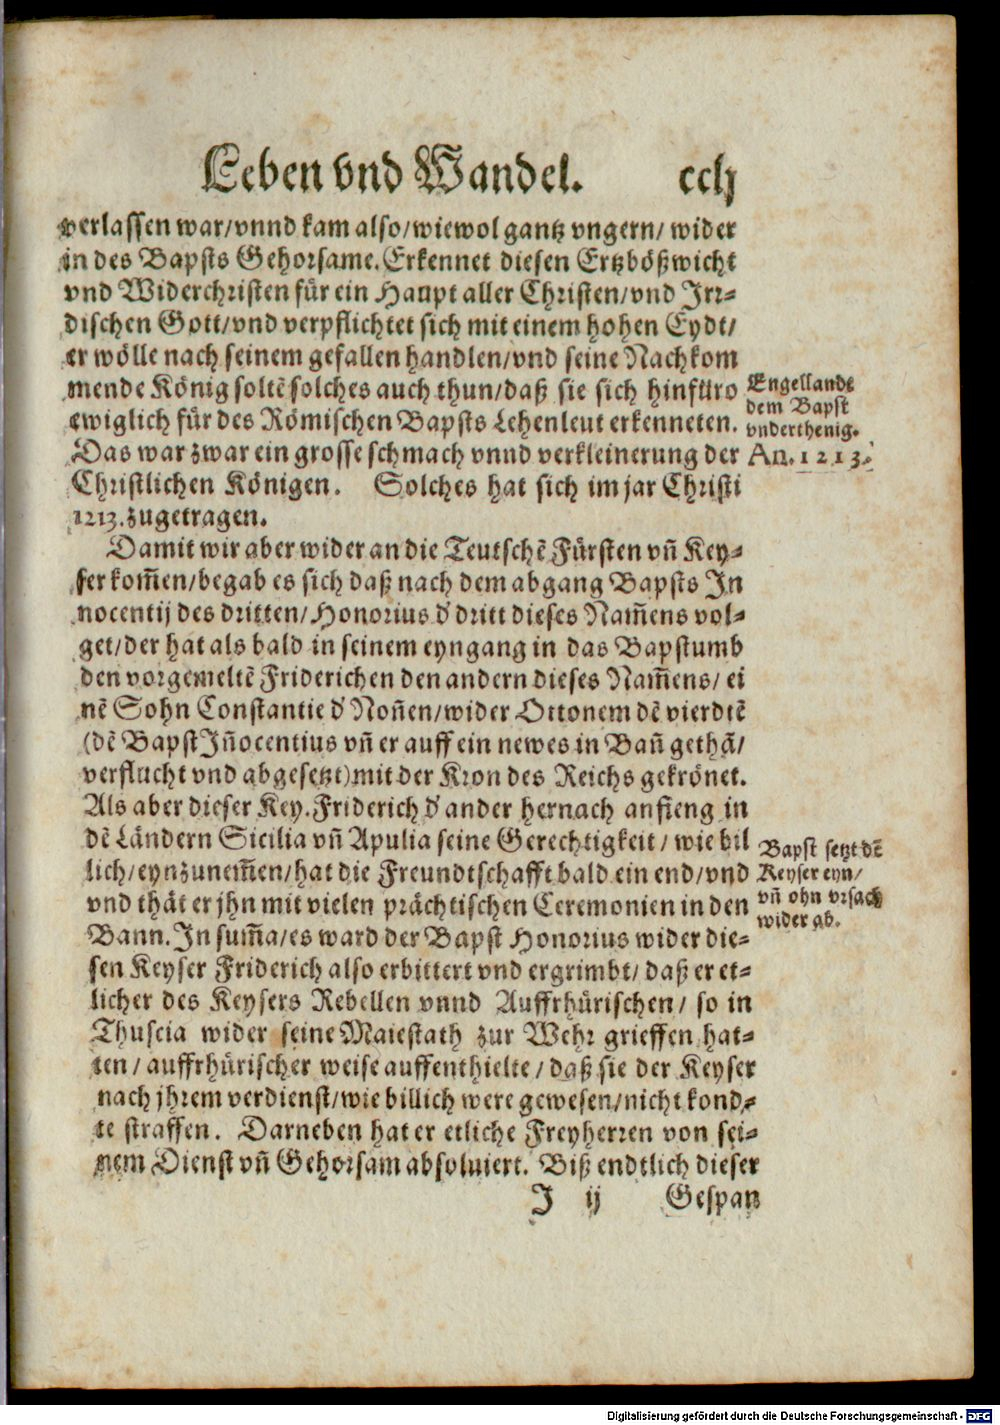 Leben vnd Wandel. cclj
verlassen war/vnnd kam also/wiewol gantz vngern/ wider
in des Bapsts Gehorsame. Erkennet diesen Ertzbößwicht
vnd Widerchristen für ein Haupt aller Christen/vnd Irr-
dischen Gott/vnd verpflichtet sich mit einem hohen Eydt/
er wölle nach seinem gefallen handlen/vnd seine Nachkom
mende König soltẽ solches auch thun/daß sie sich hinfüro
ewiglich für des Römischen Bapsts Lehenleut erkenneten.
Das war zwar ein grosse schmach vnnd verkleinerung der
Christlichen Königen. Solches hat sich im jar Christi
1213. zugetragen.
Engellandt
dem Bapst
vnderthenig.
An. 1213.
Damit wir aber wider an die Teutschẽ Fürsten vñ Key-
ser kom̃en/begab es sich daß nach dem abgang Bapsts In
nocentij des dritten/Honorius d' dritt dieses Nam̃ens vol-
get/der hat als bald in seinem eyngang in das Bapstumb
den vorgemeltẽ Friderichen den andern dieses Nam̃ens/ ei
nẽ Sohn Constantie d' Noñen/wider Ottonem dẽ vierdtẽ
(dẽ Bapst Iñocentius vñ er auff ein newes in Bañ gethã/
verflucht vnd abgesetzt) mit der Kron des Reichs gekrönet.
Als aber dieser Key. Friderich d' ander hernach anfieng in
dẽ Ländern Sicilia vñ Apulia seine Gerechtigkeit/ wie bil
lich/eynzunem̃en/hat die Freundtschafft bald ein end/vnd
vnd thät er jhn mit vielen prächtischen Ceremonien in den
Bann. In sum̃a/es ward der Bapst Honorius wider die-
sen Keyser Friderich also erbittert vnd ergrimbt/ daß er et-
licher des Keysers Rebellen vnnd Auffrhürischen/ so in
Thuscia wider seine Maiestath zur Wehr grieffen hat-
ten/ auffrhürischer weise auffenthielte/ daß sie der Keyser
nach jhrem verdienst/wie billich were gewesen/nicht kond-
te straffen. Darneben hat er etliche Freyherren von sei-
nem Dienst vñ Gehorsam absoluiert. Biß endtlich dieser
Bapst setzt dẽ
Keyser eyn/
vñ ohn vrsach
wider ab.
I ij Gespan
Digitalisierung gefördert durch die Deutsche Forschungsgemeinschaft - DFG